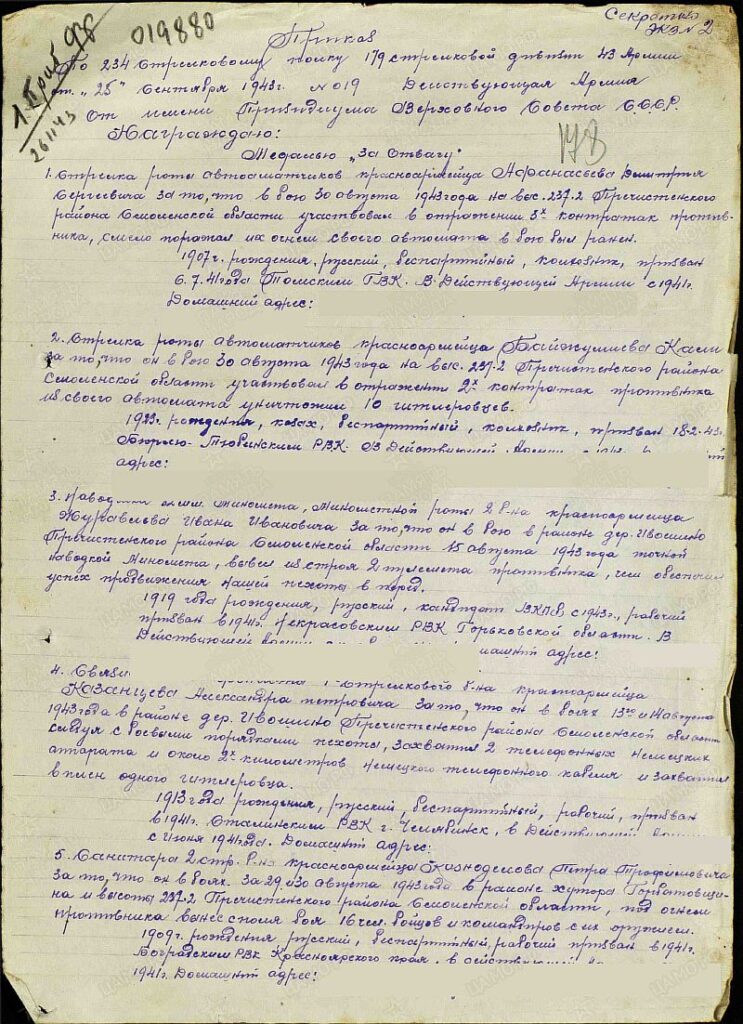 Секретно
Экз № 2
019880
1 Приб 93
261143
Приказ
По 234 Стрелковому полку 179 стрелковой дивизии 43 Армии
от „25" Сентября 1943г. № 019 Действующая Армия
От имени Призидиума Верховного Совета С.С.С.Р.
Награждаю:
Медалью „За Отвагу"
1. Стрелка роты автоматчиков красноармейца Афанасьева Дмитрия
Сергеевича за то, что в бою 30 августа 1943 года на выс. 237.2 Пречистенского
района Смоленской области участвовал в отражении 3х контратак против-
ника, смело поражал их огнем своего автомата в бою был ранен.
1907г. рождения, русский, беспартийный, колхозник, призван
6.7.41 года Томским ГВК. В Действующей Армии с 1941г.
Домашний адрес:
2. Стрелка роты автоматчиков красноармейца Байжушева Кали
за то, что он в бою 30 августа 1943 года на выс. 237.2 Пречистенского района
Смоленской области участвовал в отражении 2х контратак противника
из своего автомата уничтожил 10 гитлеровцев.
1923г. рождения, казах, беспартийный, колхозник, призван 18.2.43г.
РВК. В Действующей
адрес:
3. миномета, Минометной роты 2 б-на красноармейца
Журавлева Ивана Ивановича за то, что он в бою в районе дер. Ивошино
Пречистенского района Смоленской области 15 августа 1943 года точной
наводкой Миномета, вывел из строя 2 пулемета противника, чем обеспечил
успех продвижения нашей пехоты в перед.
1919 года рождения, русский, кандидат ВКПб с 1943г., рабочий
призван в 1941г. Некрасовским РВК Горьковской области. В
Действующей адрес:
4. Стрелкового б-на красноармейца
Казанцева Александра петровича за то, что он в боях 13го и 14 августа
1943 года в районе дер. Ивошино Пречистенского района Смоленской области
следуя с боевыми порядками пехоты, захватил 2 телефонных немецких
аппарата и около 2х километров немецкого телефонного кабеля и захватил
в плен одного гитлеровца.
1913 года рождения, русский, беспартийный, рабочий, призван
в 1941г. Сталинским РВК г. Челябинск, в Действующей
с Июня 1941 года. Домашний адрес:
5. Санитара 2 стр. б-на красноармейца Петра Трофимовича
за то, что он в боях за 29 и 30 августа 1943 года в районе хутора Горбатовщи-
на и высоты 237.2 Пречистенского района Смоленской области, под огнем
противника вынес с поля боя 16 чел. бойцов и командиров с их оружием.
1909г. рождения русский, беспартийный, рабочий призван в 1941г.
Боградским РВК Красноярского края. в
1941г. Домашний адрес: